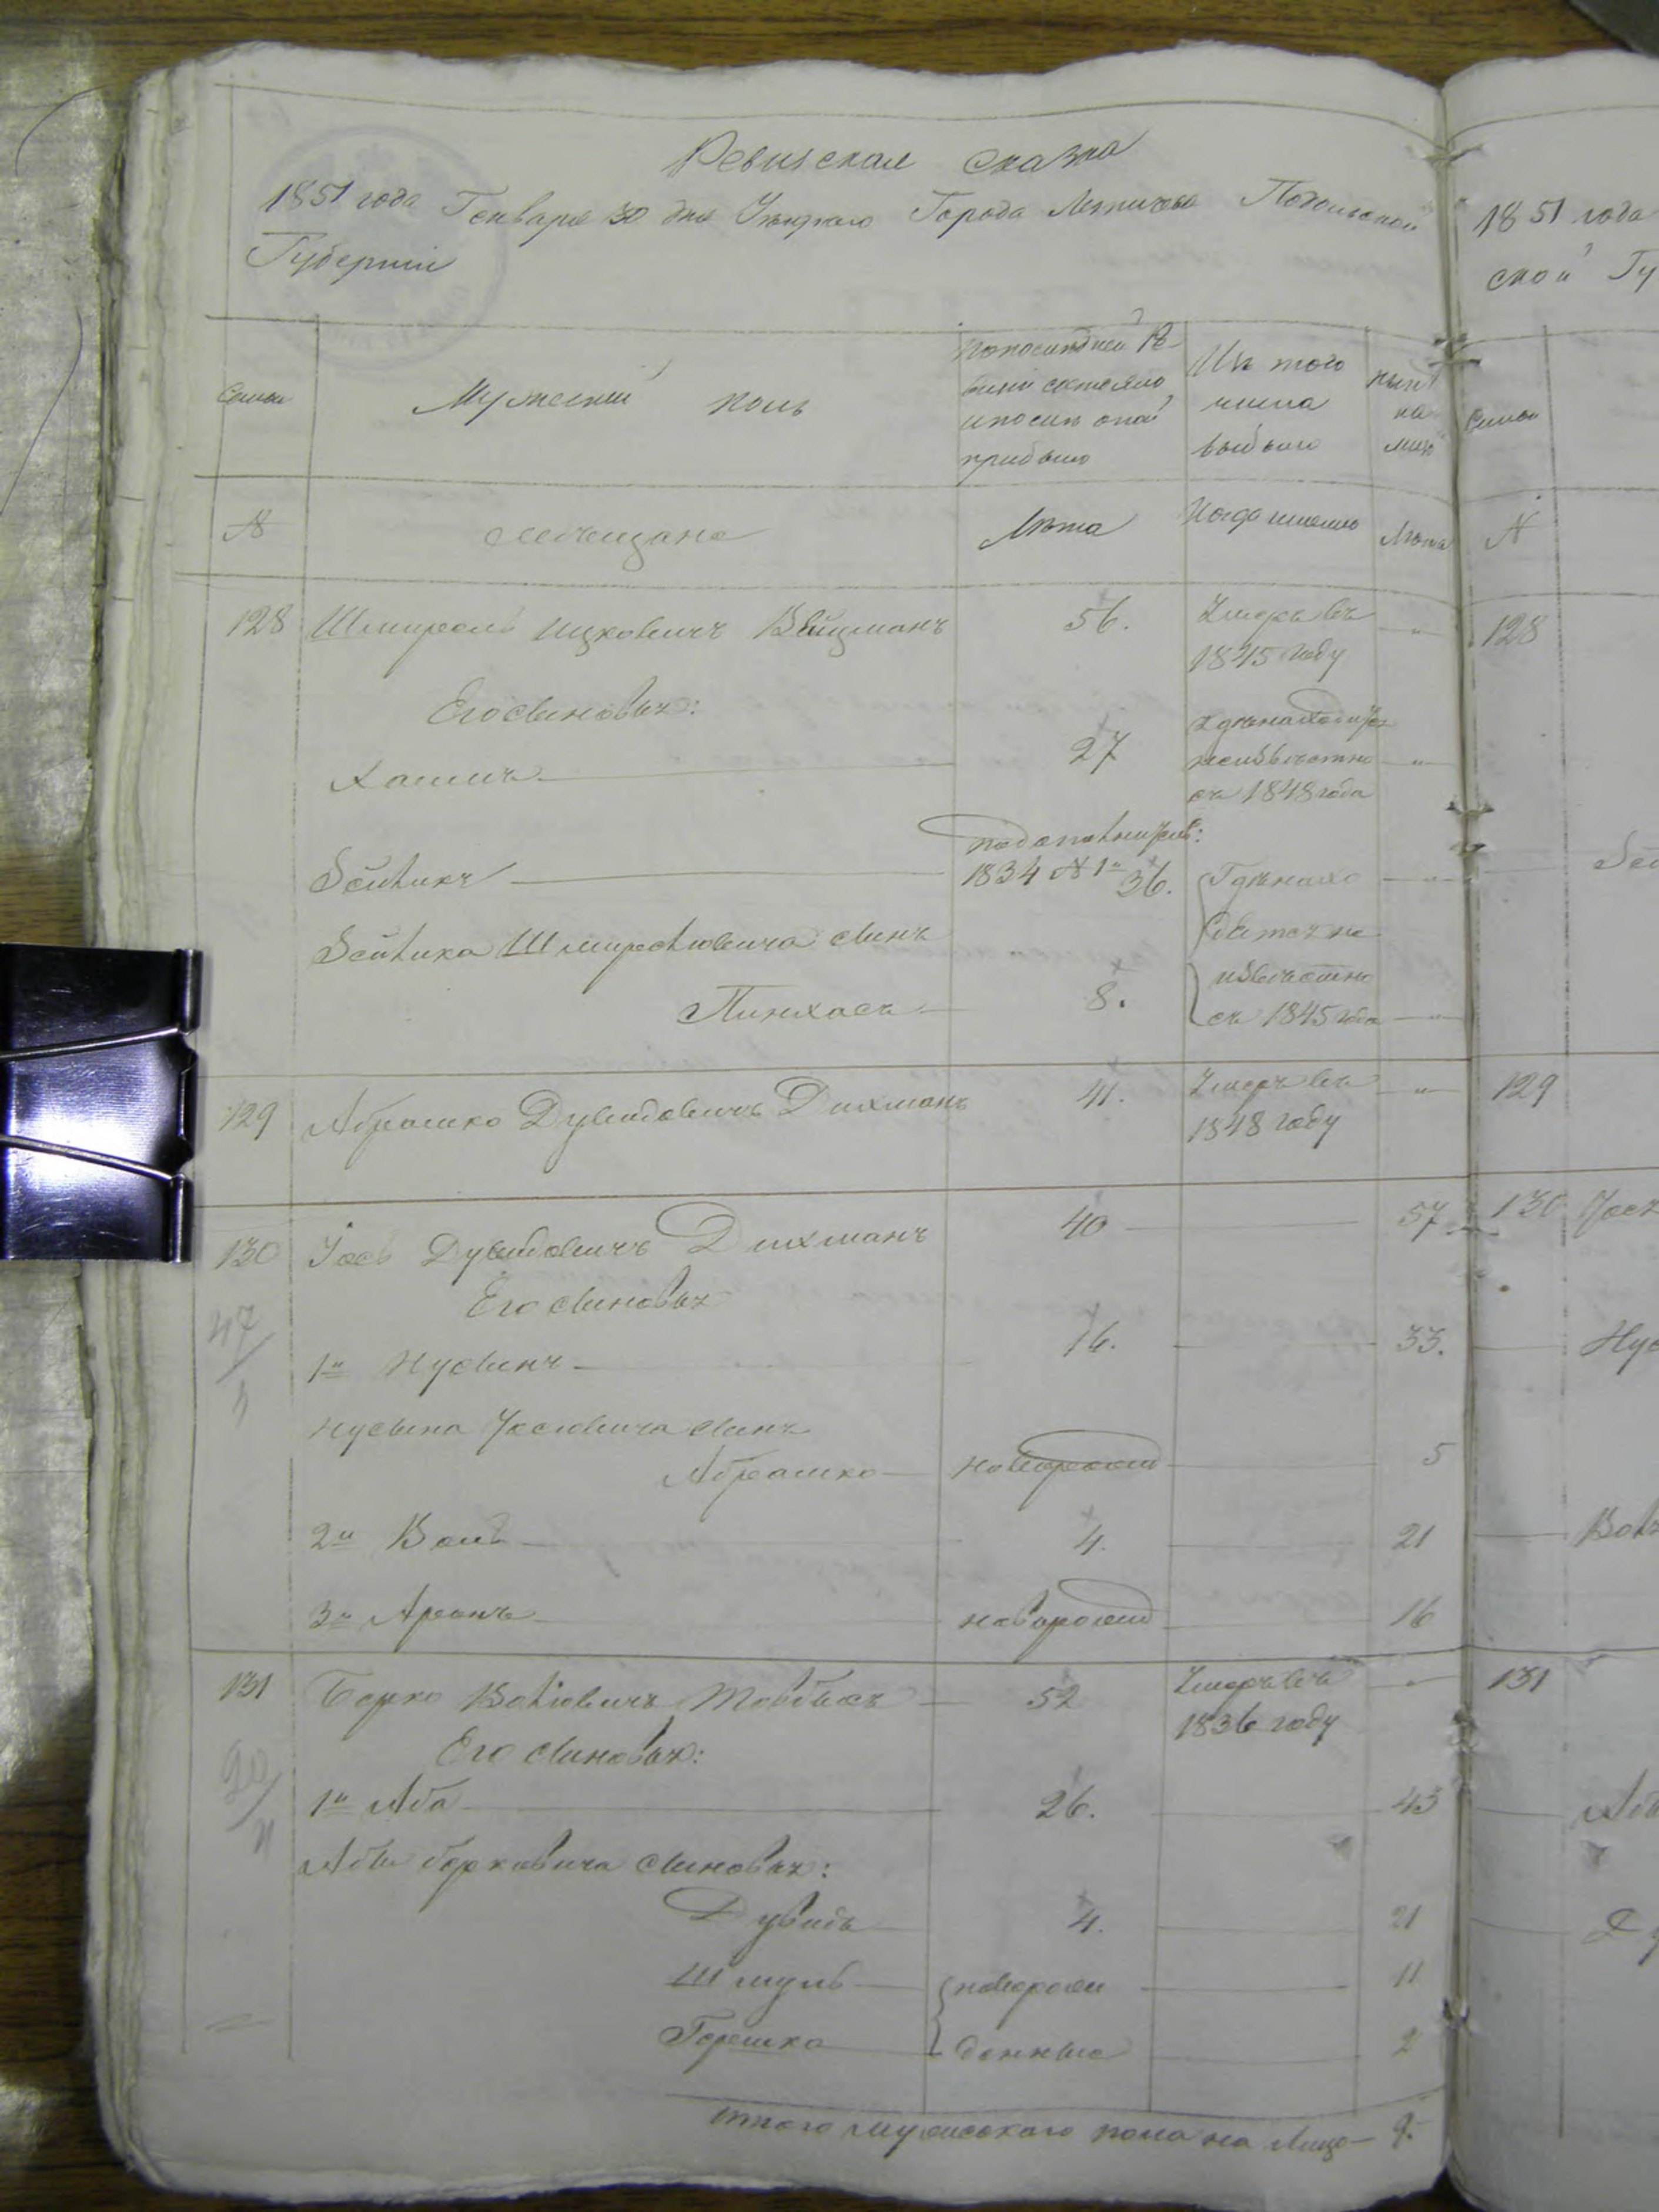 Ревизская сказка
1851 года Генваря 30 дня Уезднаго Города Летичева Подольской
Губерніи
Семьи
Мужескій полъ
По последней Ре-
визіи состояло
и после оной
прибыло
Изъ того
числа
выбыло
Ныне
на
лицо
№
Мещане
Лета
Когда именно
Лета
128 Шмирель Ицковичъ Вейцманъ 56. Умеръ въ "
1845 году
Его сыновья:
Хаимъ 27 Где находится
неизвестно "
съ 1848 года
по дополнител:
Зейликъ 1834 № 1й 36. Где нахо "
Зейлика Шмирелiовича сынъ дится не
Пинхасъ 8. известно
съ 1845 года "
129 Абрашко Дувидовичъ Дихманъ 41. Умеръ въ "
1848 году
130 Іось Дувидовичъ Дихманъ 40 57
Его сыновья
47/4
1й Нусынъ 16. 33.
Нусына Іосiовича сынъ
Абрашко новорожд 5
2й Воль 4. 21
3й Аронъ новорожд 16
131 Берко Волiовичъ Товбисъ 52 Умеръ въ "
1836 году
Его сыновья:
1й Аба 26. 43
Абы Берковича сыновья:
Дувидъ 4. 21
Шмуль новорож 11
Гершко денные 2
Итого мужескаго пола на лицо 9.
1851 года
ской Гу
Семьи
№
128
Зей
129
130 Іося
Нус
Воля
131
Аб
Ду